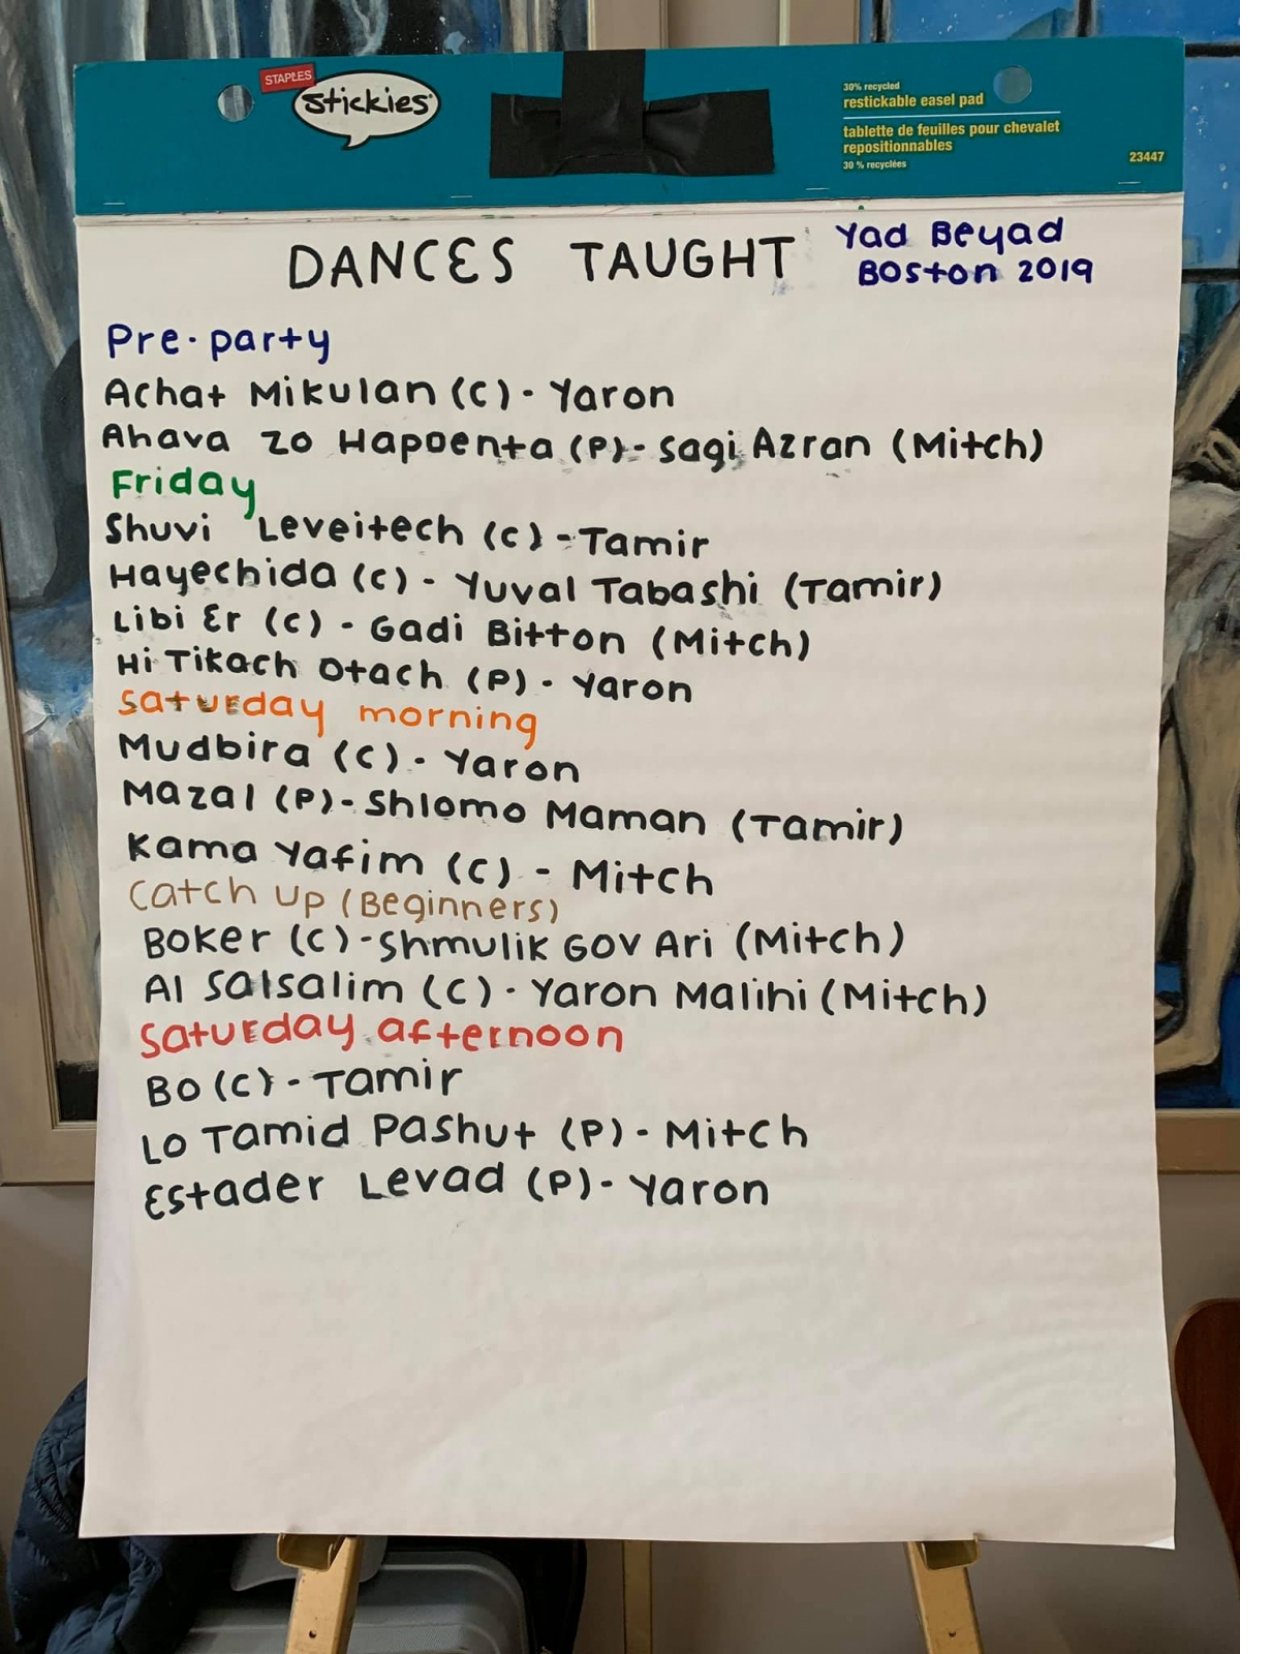 STAPLES
stickies
30% recycled
restickable easel pad
tablette de feuilles pour chevalet
repositionnables
30 % recyclées
23447
DANCES TAUGHT
Yad Beyad
Boston 2019
Pre-party
Achat Mikulan (C) - Yaron
Ahava zo Hapoenta (P) - Sagi Azran (Mitch)
Friday
Shuvi Leveitech (C) - Tamir
Hayechida (C) - Yuval Tabashi (Tamir)
Libi Er (C) - Gadi Bitton (Mitch)
Hi Tikach Otach (P) - Yaron
Saturday morning
Mudbira (C) - Yaron
Mazal (P) - Shlomo Maman (Tamir)
Kama Yafim (C) - Mitch
Catch up (Beginners)
Boker (C) - Shmulik Gov Ari (Mitch)
Al Salsalim (C) - Yaron Malihi (Mitch)
Saturday afternoon
Bo (C) - Tamir
Lo Tamid Pashut (P) - Mitch
Estader Levad (P) - Yaron